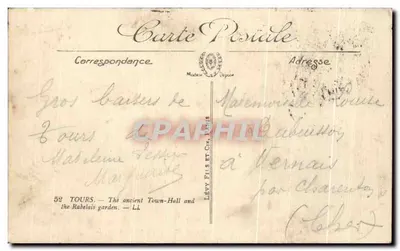 Carte Postale
Correspondance
Adresse
Gros baisers de
Tours
Madeleine
Marguerite
52 TOURS. - The ancient Town-Hall and
the Rabelais garden. - LL
LÉVY FILS ET Cie, PARIS
CPAPHIL
Mademoiselle Louise
Dubuisson
à Vernais
par Charenton
(Cher)